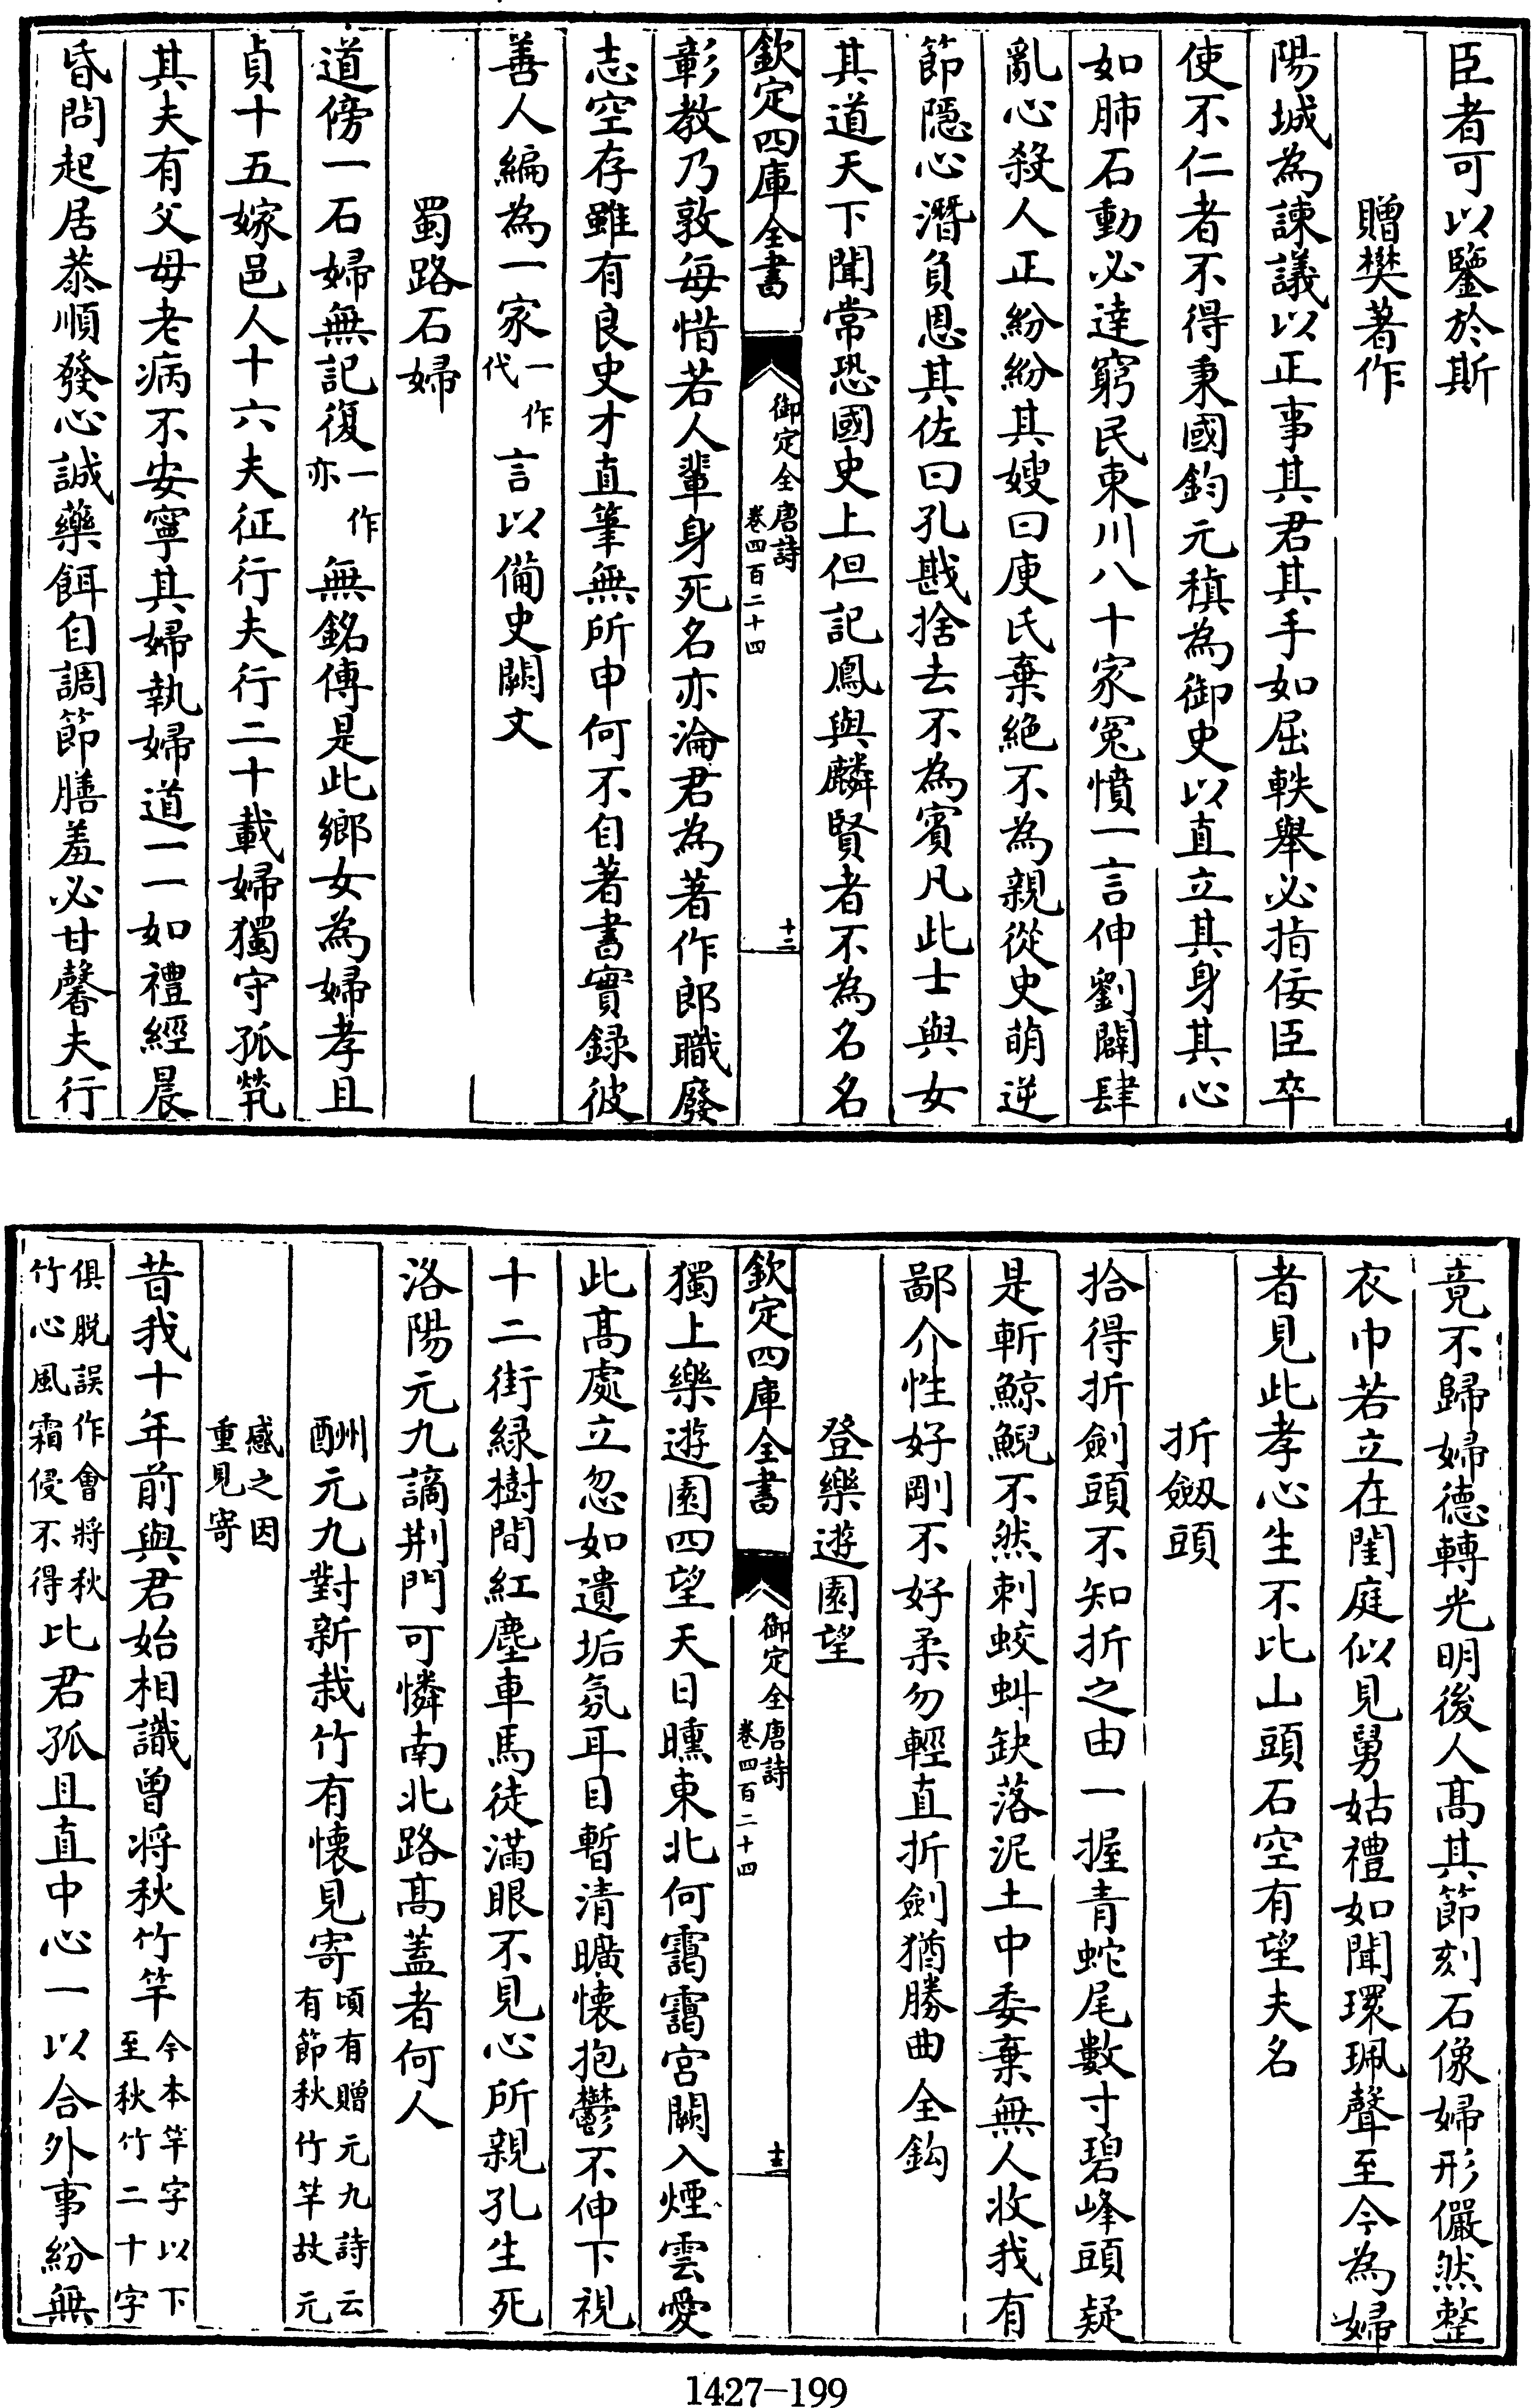 臣者可以鑒於斯
贈樊著作
陽城為諫議以正事其君其手如屈軼舉必指佞臣卒
使不仁者不得秉國鈞元稹為御史以直立其身其心
如肺石動必達窮民東川八十家冤憤一言伸劉闢肆
亂心殺人正紛紛其嫂曰庾氏棄絶不為親從史萌逆
節隱心潛負恩其佐曰孔戡捨去不為賓凡此士與女
其道天下聞常恐國史上但記鳳與麟賢者不為名名
欽定四庫全書
御定全唐詩
卷四百二十四
十二
彰教乃敦每惜若人輩身死名亦淪君為著作郎職廢
志空存雖有良史才直筆無所申何不自著書實録彼
善人編為一家一作代言以備史闕文
蜀路石婦
道傍一石婦無記復一作亦無銘傳是此鄉女為婦孝且
貞十五嫁邑人十六夫征行夫行二十載婦獨守孤煢
其夫有父母老病不安寧其婦執婦道一一如禮經晨
昏問起居恭順發心誠藥餌自調節膳羞必甘馨夫行
竟不歸婦德轉光明後人高其節刻石像婦形儼然整
衣巾若立在閨庭似見舅姑禮如聞環珮聲至今為婦
者見此孝心生不比山頭石空有望夫名
折劔頭
拾得折劍頭不知折之由一握青蛇尾數寸碧峰頭疑
是斬鯨鯢不然刺蛟虯缺落泥土中委棄無人收我有
鄙介性好剛不好柔勿輕直折劍猶勝曲全鈎
登樂遊園望
欽定四庫全書
御定全唐詩
卷四百二十四
十三
獨上樂遊園四望天日曛東北何靄靄宮闕入煙雲愛
此高處立忽如遺垢氛耳目暫清曠懷抱鬱不伸下視
十二街緑樹間紅塵車馬徒滿眼不見心所親孔生死
洛陽元九謫荆門可憐南北路高蓋者何人
酬元九對新栽竹有懷見寄頃有贈元九詩云有節秋竹竿故元
感之因重見寄
昔我十年前與君始相識曾將秋竹竿今本竿字以下至秋竹二十字
俱脱誤作會將秋竹心風霜侵不得比君孤且直中心一以合外事紛無
1427—199